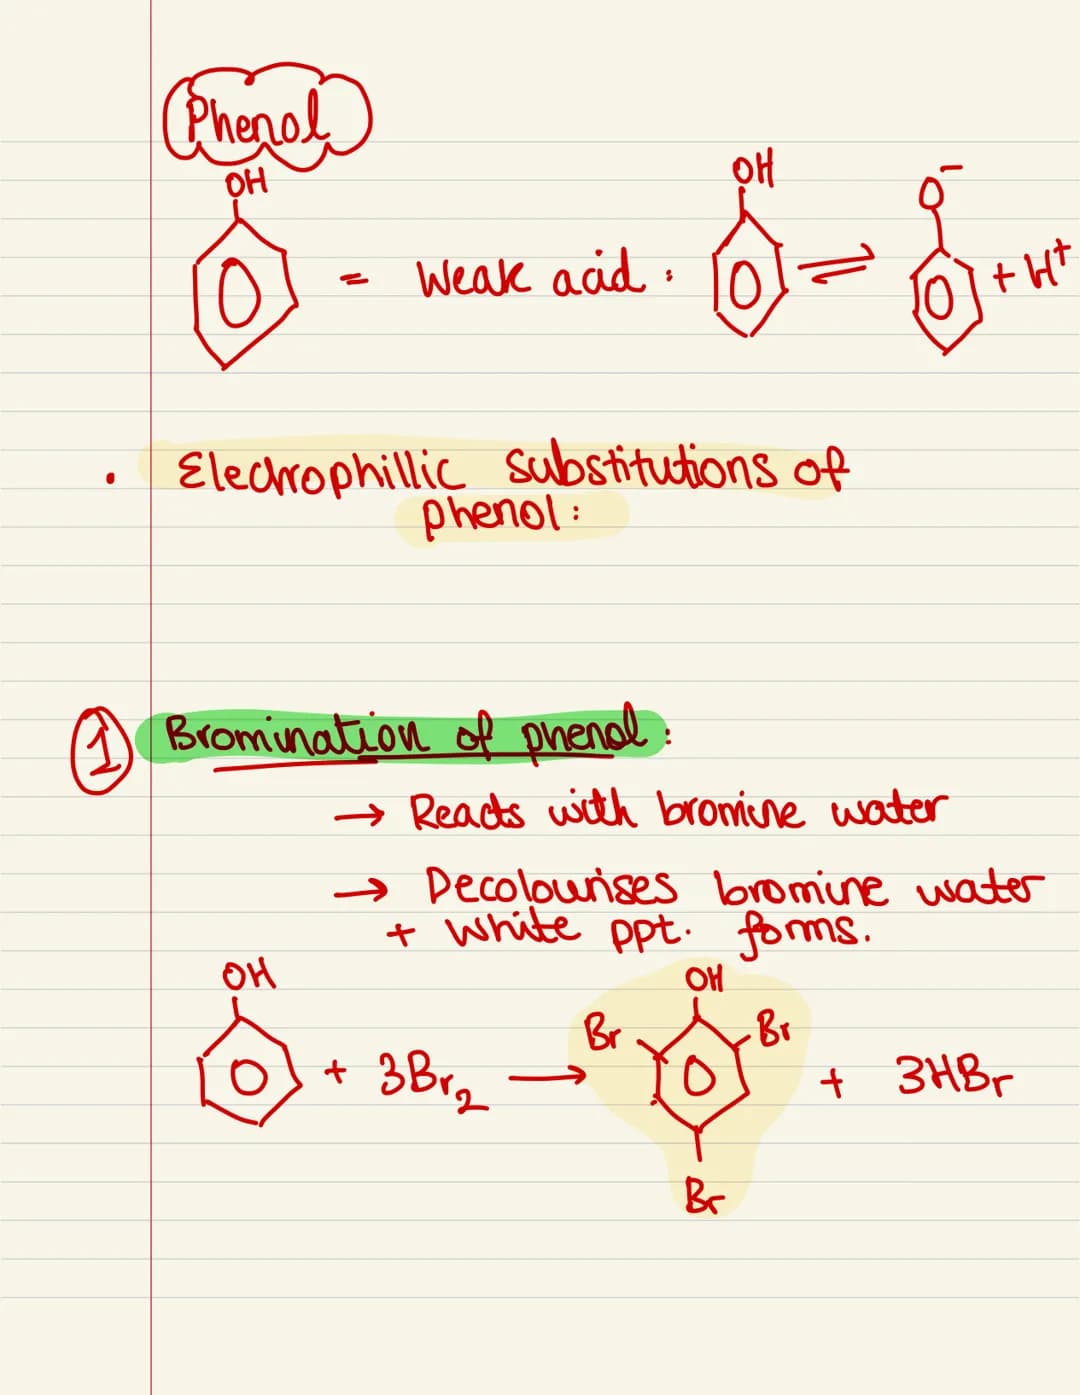 Phenol
OH
= Weak acid :
OH
⇌
O⁻
+ H⁺
• Electrophillic substitutions of
phenol :
① Bromination of phenol :
→ Reacts with bromine water
→ Decolourises bromine water
+ white ppt. forms.
OH
+ 3Br₂ →
OH
Br
Br
Br
+ 3HBr